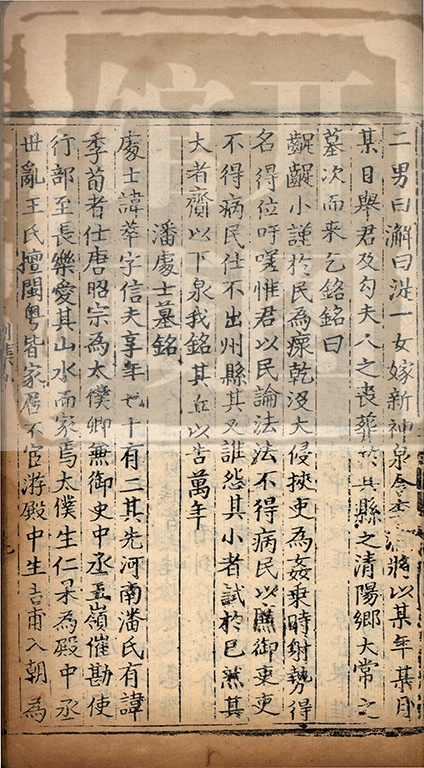 二男曰澥曰湜一女嫁新神泉令將以某年某月
某日舉君及芶夫人之喪葬於其縣之清陽鄉大常之
墓次而來乞銘銘曰
齪齪小謹於民為瘼乾沒大侵挾吏為姦乘時射勢得
名得位吁嗟惟君以民論法法不得病民以廉御吏吏
不得病民仕不出州縣其又誰怨其小者試於已然其
大者齎以下泉我銘其丘以告萬年
潘處士墓銘
處士諱莘字信夫享年七十有二其先河南潘氏有諱
季荀者仕唐昭宗為太僕卿無御史中丞五嶺催勘使
行部至長樂愛其山水而家焉太僕生仁杲為殿中丞
世亂王氏擅閩粵皆家居不宦游殿中生吉甫入朝為